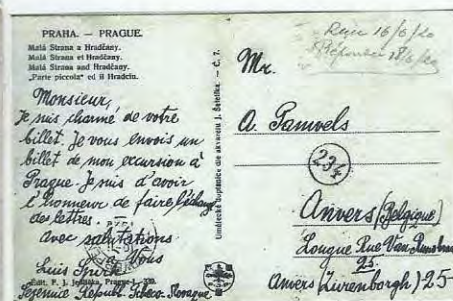 PRAHA. — PRAGUE.
Malá Strana a Hradčany.
Malá Strana et Hradčany.
Malá Strana and Hradčany.
„Parte piccola" ed il Hradcin.
Monsieur,
Je suis charmé de votre
billet. Je vous envois un
billet de mon excursion à
Prague. Je suis d'avoir
l'honneur de faire l'échange
des lettres.
avec salutations
à Vous
Luis
Edit. F. J. Prague
Républ. Tchéco-Slovaque
Umělecké dle akvarelu J. Šetelíka. — Č. 7.
16/6/20
Réponse 18/6/20
Mr.
A. Pauwels
234
Anvers (Belgique)
Longue Rue Van
25
Anvers (Zurenborgh) 25